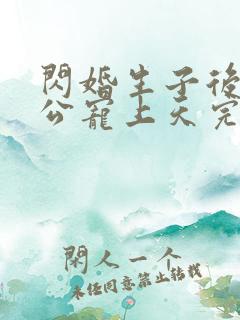 閃婚生子後
公寵上天完
閑人一个
未经同意禁止转载